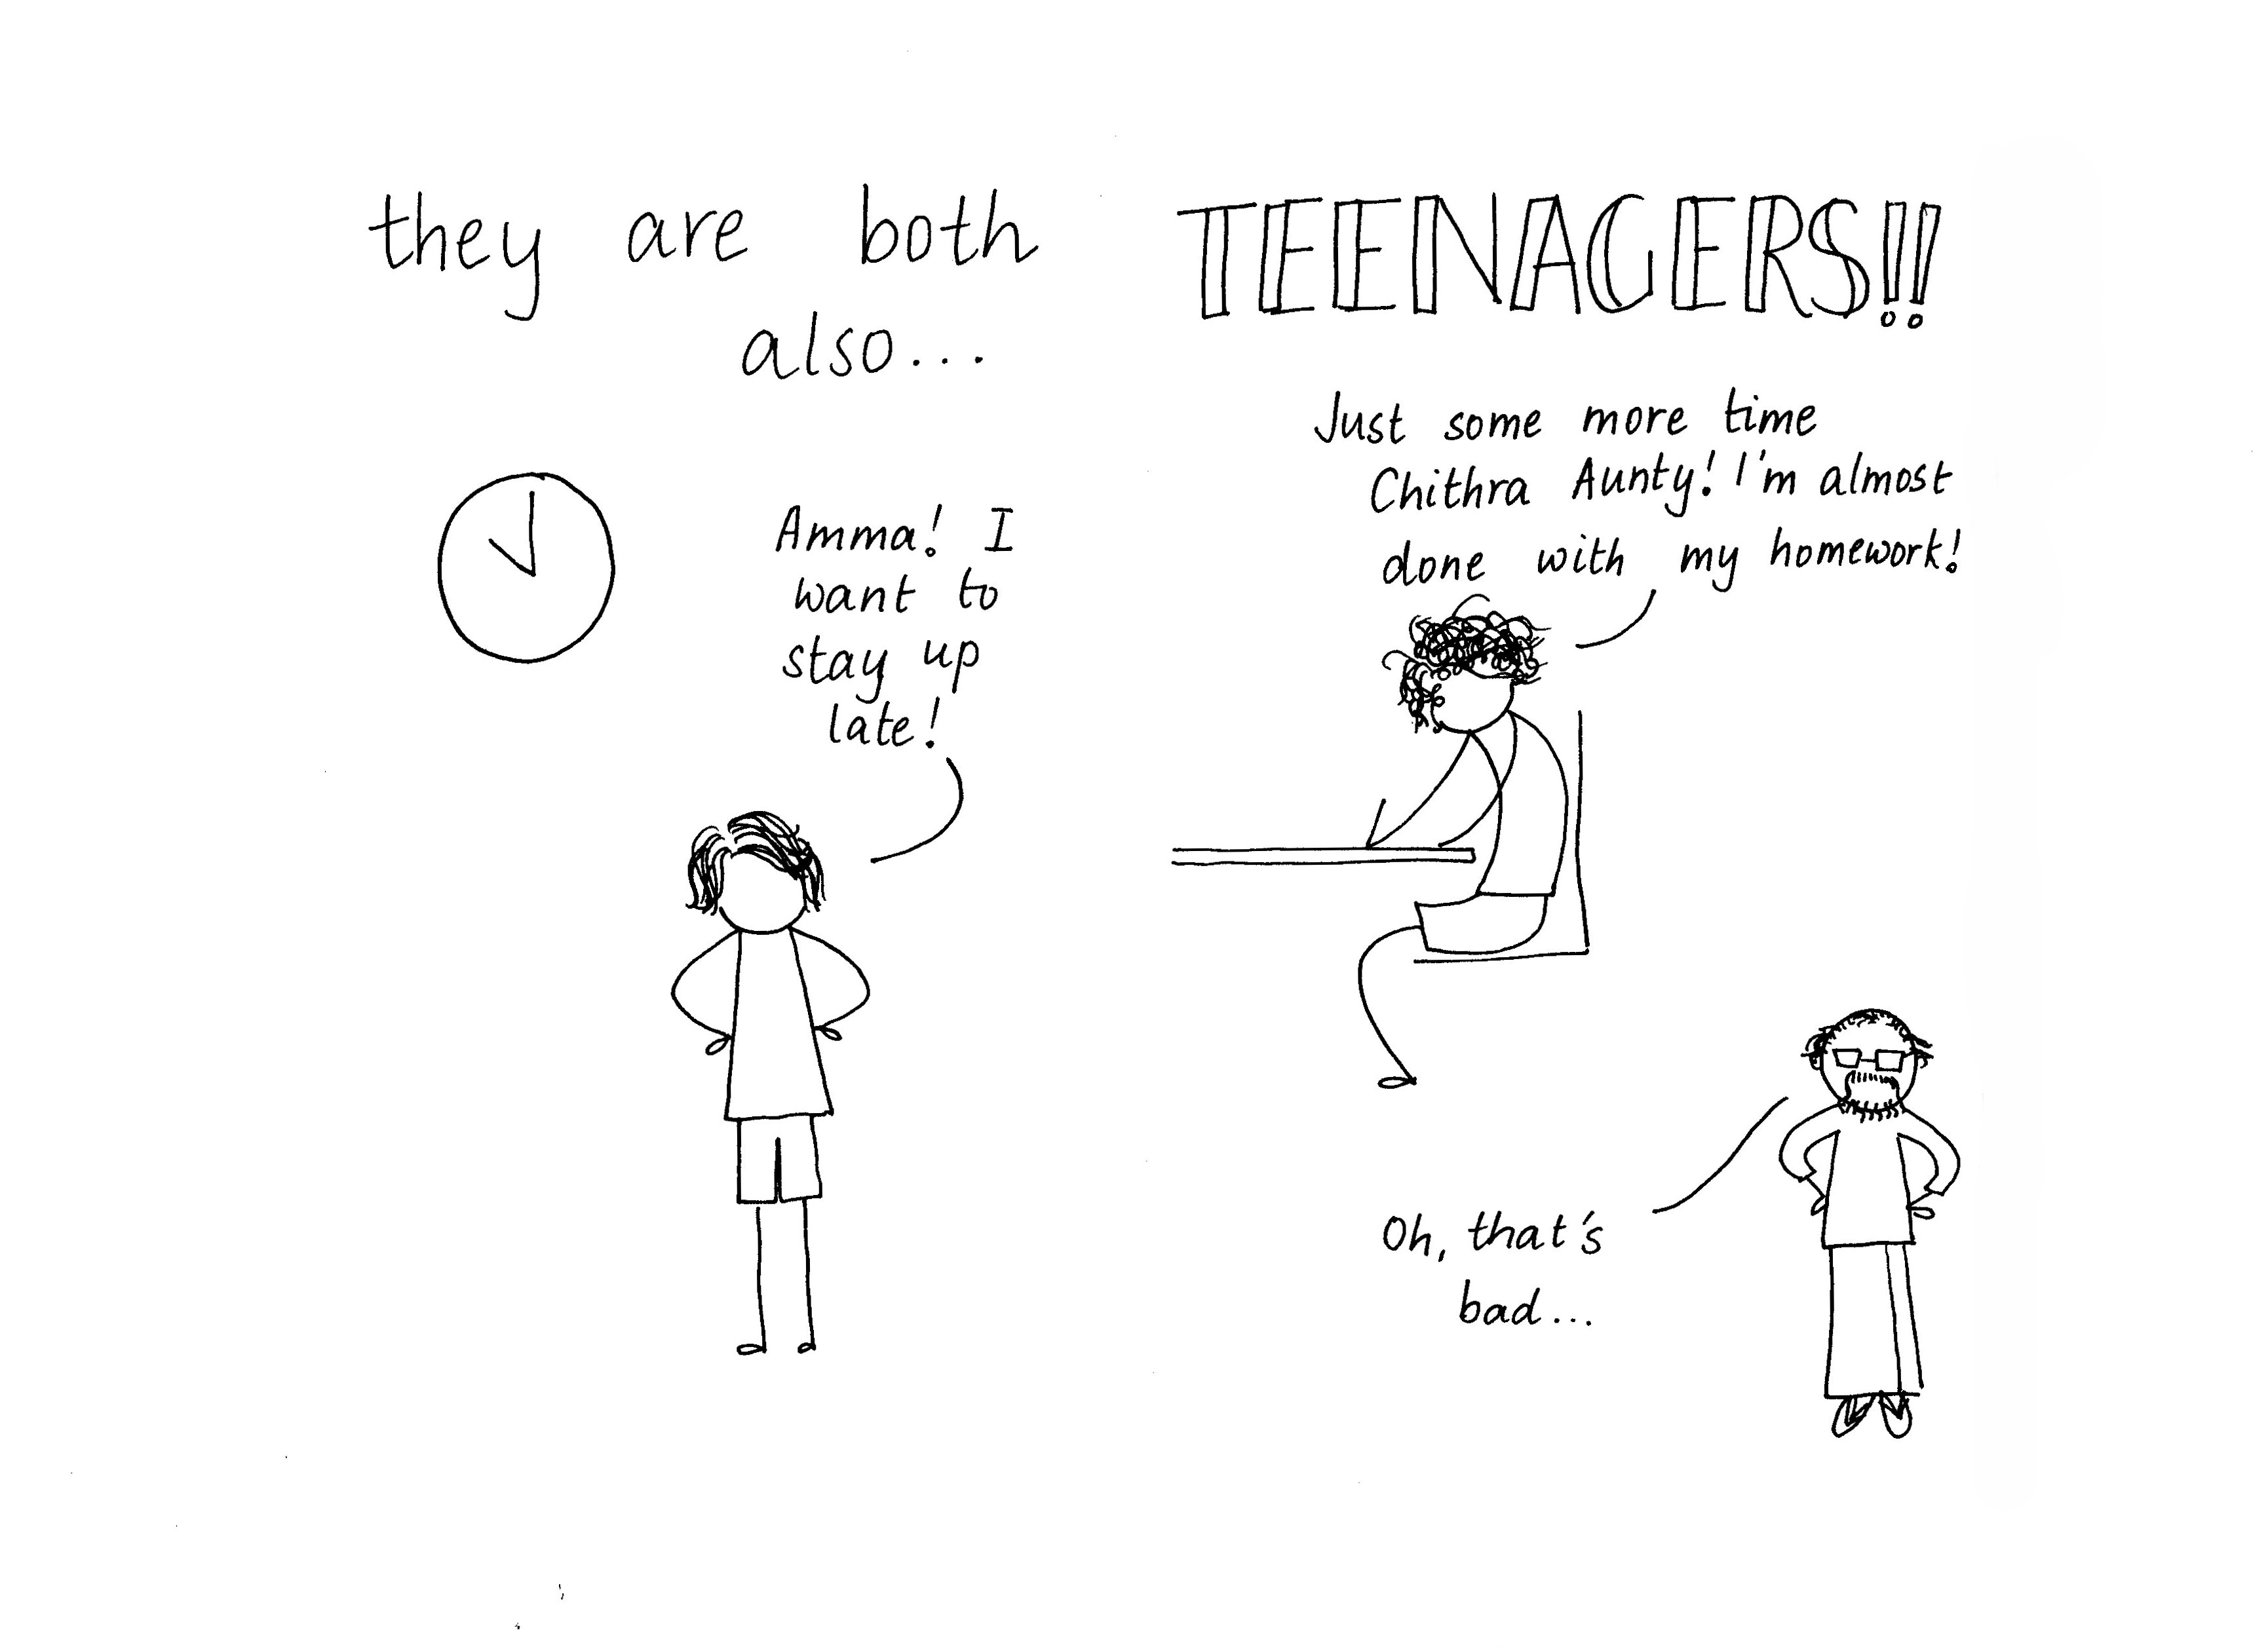 they are both
also...
TEENAGERS!!
Amma! I
want to
stay up
late!
Just some more time
Chithra Aunty! I'm almost
done with my homework!
Oh, that's
bad...